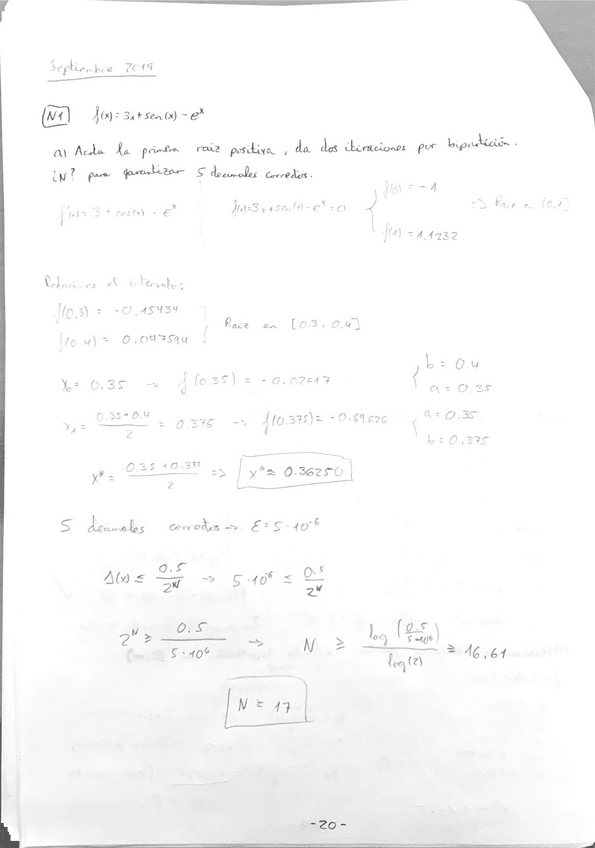 Septiembre 2019
N1 f(x) = 3x + sen(x) - eˣ
a) Acota la primera raiz positiva, da dos iteraciones por bipartición.
¿N? para garantizar 5 decimales correctos.
f'(x) = 3 + cos(x) - eˣ f(x) = 3x + sen(x) - eˣ = 0 { f(0) = -1 f(1) = 1.1232 => Raiz en [0,1]
Reducimos el intervalo:
f(0.3) = -0.15434
f(0.4) = 0.047594 } Raiz en [0.3, 0.4]
x₀ = 0.35 → f(0.35) = -0.02617 { b = 0.4 a = 0.35
x₁ = (0.35+0.4)/2 = 0.375 → f(0.375) = -0.69626 { a = 0.35 b = 0.375
x* = (0.35+0.375)/2 => x* ≈ 0.36250
5 decimales correctos → ε = 5·10⁻⁶
Δ(x) ≤ 0.5/2ᴺ → 5·10⁻⁶ ≤ 0.5/2ᴺ
2ᴺ ≥ 0.5/5·10⁶ → N ≥ log(0.5/5·10⁶)/log(2) ≥ 16.61
N = 17
-20-